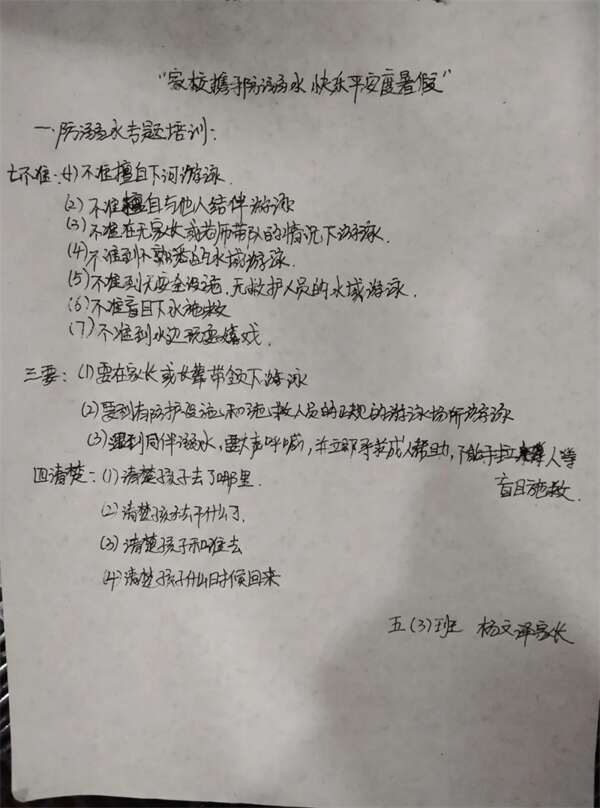 “家校携手防溺水 快乐平安度暑假”
一.防溺水专题培训:
七不准:(1)不准擅自下河游泳.
(2)不准擅自与他人结伴游泳
(3)不准在无家长或老师带队的情况下游泳.
(4)不准到不熟悉的水域游泳.
(5)不准到无安全设施,无救护人员的水域游泳.
(6)不准盲目下水施救
(7)不准到水边玩耍嬉戏.
三要:(1)要在家长或长辈带领下游泳
(2)要到有防护设施和施救人员的正规的游泳场所游泳
(3)遇到同伴溺水,要大声呼喊,并立即寻求成人帮助,不能手拉人等
盲目施救.
四清楚:(1)清楚孩子去了哪里.
(2)清楚孩子去干什么了.
(3)清楚孩子和谁去
(4)清楚孩子什么时候回来
五(3)班 杨文译家长